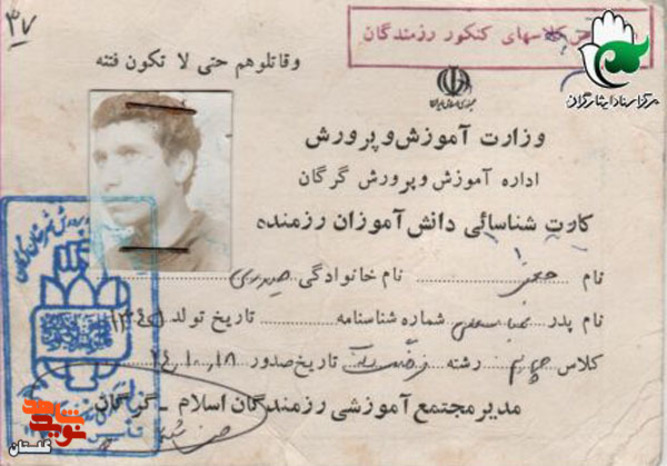 ۴۷
کلاسهای کنکور رزمندگان
وقاتلوهم حتی لا تکون فتنه
جمهوری اسلامی ایران
مرکز اسناد ایثارگران
وزارت آموزش و پرورش
اداره آموزش و پرورش گرگان
کارت شناسائی دانش آموزان رزمنده
نام جعفر نام خانوادگی حیدری
نام پدر شماره شناسنامه تاریخ تولد
کلاس چهارم رشته تاریخ صدور ۶۴،۱۰،۱۸
مدیر مجتمع آموزشی رزمندگان اسلام - گرگان
نوید شاهد
گلستان